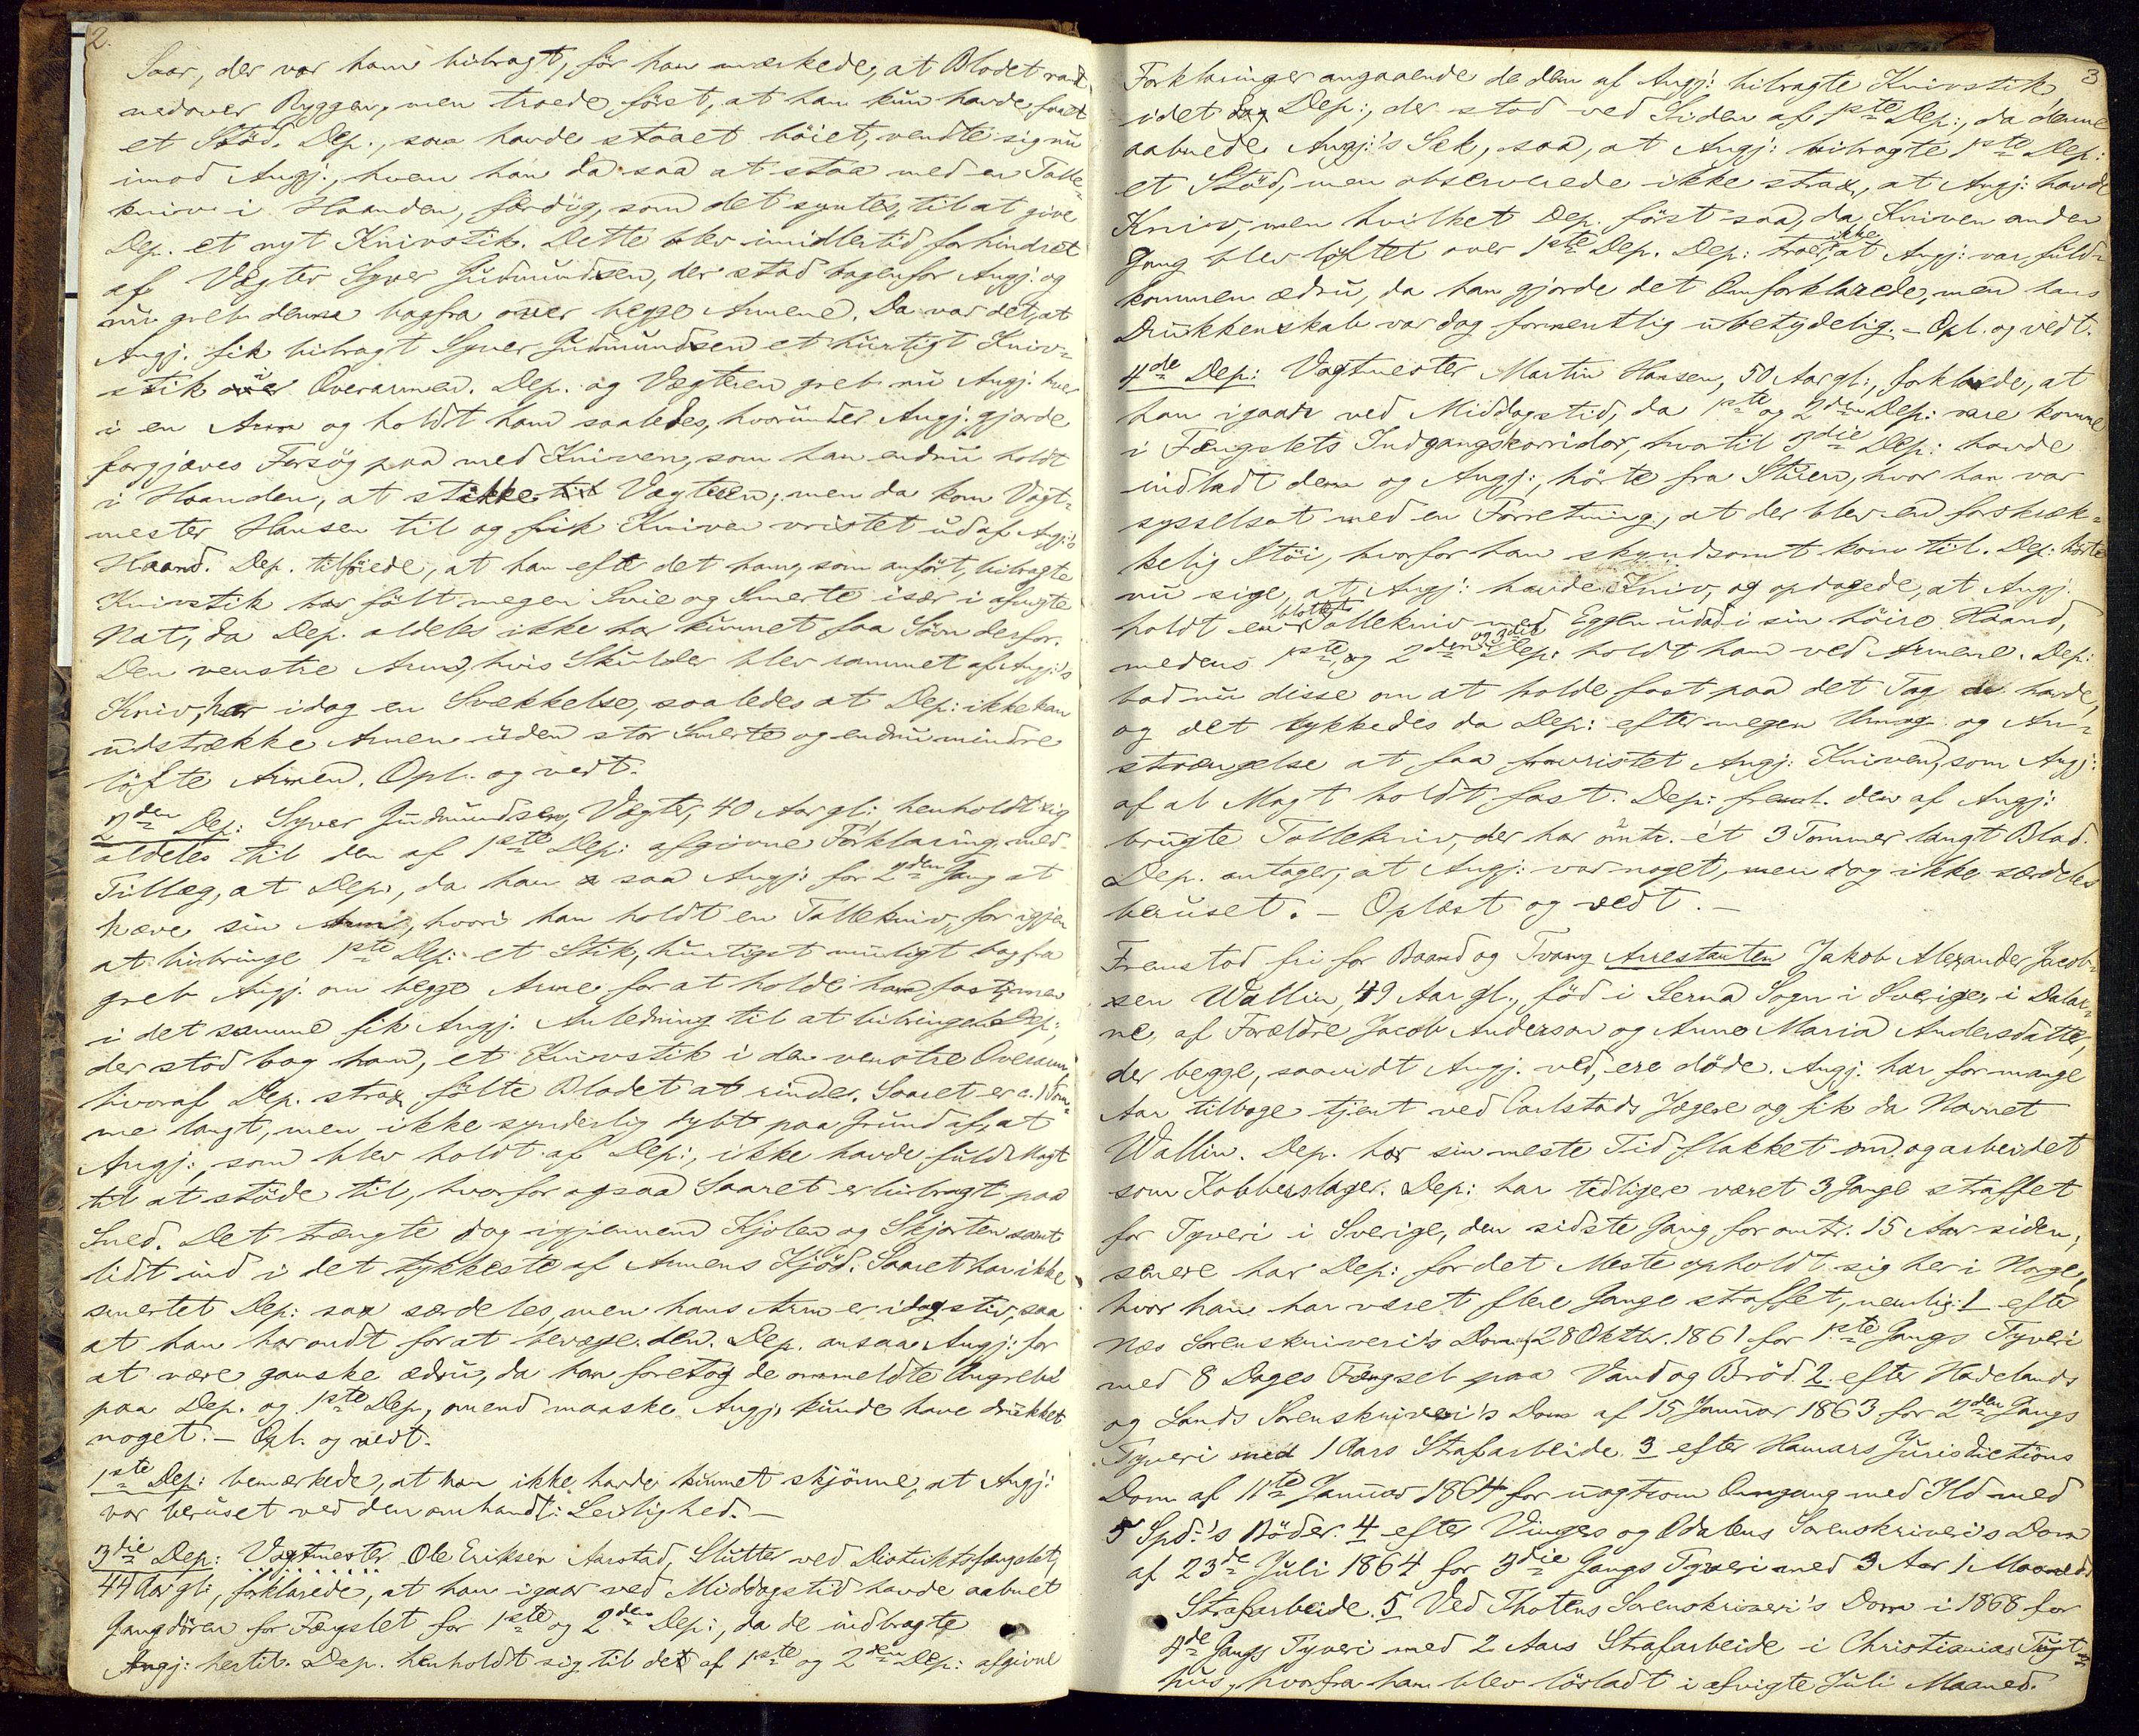 2.
Saar, der var ham bibragt, för han mærkede, at Blodet randt
nedover Ryggen, men troede först, at han kun havde faaet
et Stöd. Dep., som havde staaet böiet, vendte sig nu
imod Angj., hvem han da saa at staa med en Tolle-
kniv i Haanden, færdig, som det syntes, til at give
Dep. et nyt Knivstik. Dette blev imidlertid forhindret
af Vægter Syver Gudmundsen, der stod bagenfor Angj. og
nu greb denne bagfra over begge Armene. Da var det, at
Angj. fik bibragt Syver Gudmundsen et hurtigt Kniv-
stik i Overarmen. Dep. og Vægteren greb nu Angj. hver
i en Arm og holdt ham saaledes, hvorunder Angj. gjorde
forgjæves Forsög paa med Kniven, som han endnu holdt
i Haanden, at stikke til Vægteren; men da kom Vagt-
mester Hansen til og fik Kniven vristet ud af Angj:'s
Haand. Dep. tilföiede, at han efter det ham, som anfört, bibragte
Knivstik har fölt megen Svie og Smerte især i afvigte
Nat, da Dep. aldeles ikke har kunnet faa Sövn derfor.
Den venstre Arm, hvis Skulder blev rammet af Angj:'s
Kniv, har idag en Svækkelse, saaledes at Dep: ikke kan
udstrække Armen uden stor Smerte og endnu mindre
löfte Armen. Opl. og vedt.
2den Dep: Syver Gudmundsen, Vægter, 40 Aar gl:, henholdt sig
aldeles til den af 1ste Dep: afgivne Forklaring med
Tillæg, at Dep:, da han saa Angj: for 2den Gang at
hæve sin Arm, hvori han holdt en Tollekniv, for igjen
at bibringe 1ste Dep: et Stik, hurtigst muligt bagfra
greb Angj. om begge Arme for at holde ham fast; men
i det samme fik Angj. Anledning til at bibringe Dep:,
der stod bag ham, et Knivstik i den venstre Overarm,
hvoraf Dep. strax fölte Blodet at rinde. Saaret er c. 1 Tom-
me langt, men ikke synderlig dybt paa Grund af, at
Angj:, som blev holdt af Dep:, ikke havde fuld Magt
til at stöde til, hvorfor ogsaa Saaret er bibragt paa
Sned. Det trængte dog igjennem Kjolen og Skjorten samt
lidt ind i det tykkeste af Armens Kjöd. Saaret har ikke
smertet Dep: saa særdeles, men hans Arm er idag stiv, saa
at han har ondt for at bevæge den. Dep. ansaa Angj: for
at være ganske ædru, da han foretog de ommeldte Angreb
paa Dep. og 1ste Dep., omend maaske Angj. kunde have drukket
noget. – Opl. og vedt.
1ste Dep: bemærkede, at han ikke havde kunnet skjönne, at Angj:
var beruset ved den omhandl: Leilighed. –
3die Dep: Vagtmester Ole Eriksen Aarstad, Slutter ved Distriktsfængslet,
44 Aar gl:, forklarede, at han igaar ved Middagstid havde aabnet
Gangdören for Fængslet for 1ste og 2den Dep:, da de indbragte
Angj: hertil. Dep. henholdt sig til det af 1ste og 2den Dep: afgivne
3
Forklaringer angaaende de dem af Angj: bibragte Knivstik,
idet Dep:, der stod ved Siden af 1ste Dep:, da denne
aabnede Angj:'s Sæk, saa, at Angj: bibragte 1ste Dep:
et Stöd, men observerede ikke strax, at Angj: havde
Kniv, men hvilket Dep. först saa, da Kniven anden
Gang blev löftet over 1ste Dep. Dep: troer ikke, at Angj: var fuld-
kommen ædru, da han gjorde det Omforklarede, men hans
Drukkenskab var dog formentlig ubetydelig. – Opl. og vedt.
4de Dep: Vagtmester Martin Hansen, 50 Aar gl:, forklarede, at
han igaar ved Middagstid, da 1ste og 2den Dep: vare komne
i Fængslets Indgangskorridor, hvortil 3die Dep: havde
indladt dem og Angj:, hörte fra Stuen, hvor han var
sysselsat med en Forretning, at der blev en forskræk-
kelig Stöi, hvorfor han skyndsomt kom til. Dep: hörte
nu sige, at Angj: havde Kniv, og opdagede, at Angj.
holdt en blottet Tollekniv med Eggen udad i sin höire Haand,
medens 1ste, 2den og 3die Dep: holdt ham ved Armene. Dep:
bad nu disse om at holde fast paa det Tag de havde,
og det lykkedes da Dep: efter megen Umag og An-
strængelse at faa fravristet Angj: Kniven, som Angj:
af al Magt holdt fast. Dep: freml. den af Angj:
brugte Tollekniv, der har omtr. et 3 Tommer langt Blad.
Dep. antager, at Angj: var noget, men dog ikke særdeles
beruset. – Oplæst og vedt. –
Fremstod fri for Baand og Tvang Arrestanten Jakob Alexander Jacob-
sen Wallin, 49 Aar gl., föd i Serna Sogn i Sverige, i Dalar-
ne, af Forældre Jacob Anderson og Anne Maria Andersdatter,
der begge, saavidt Angj. ved, ere döde. Angj. har for mange
Aar tilbage tjent ved Carlstads Jægere og fik da Navnet
Wallin. Dep. har sin meste Tid flakket om og arbeidet
som Kobberslager. Dep: har tidligere været 3 Gange straffet
for Tyveri i Sverige, den sidste Gang for omtr. 15 Aar siden;
senere har Dep: for det Meste opholdt sig her i Norge,
hvor han har været flere Gange straffet, nemlig: 1 efter
Næs Sorenskriveri's Dom 28 Oktbr. 1861 for 1ste Gangs Tyveri
med 8 Dages Fængsel paa Vand og Bröd. 2 efter Hadelands
og Lands Sorenskriveri's Dom af 15 Januar 1863 for 2den Gangs
Tyveri med 1 Aars Strafarbeide. 3 efter Hamars Jurisdictions
Dom af 11te Januar 1864 for uagtsom Omgang med Ild med
5 Spd:'s Böder. 4 efter Vinger og Odalens Sorenskriveri's Dom
af 23de Juli 1864 for 3die Gangs Tyveri med 3 Aar 1 Maaneds
Strafarbeide. 5 Ved Thotens Sorenskriveri's Dom i 1868 for
4de Gangs Tyveri med 2 Aars Strafarbeide i Christianias Tugt-
hus, hvorfra han blev lösladt i afvigte Juli Maaned.